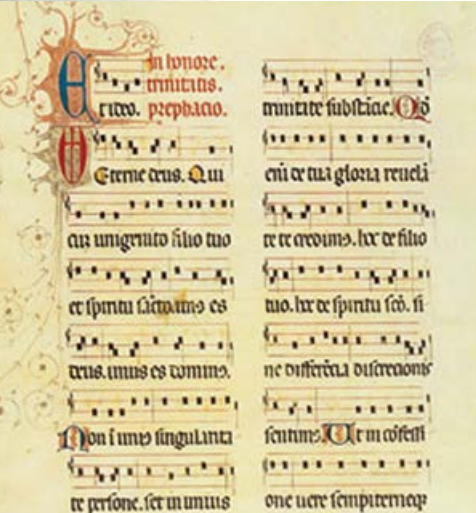 In honore.
trinitatis.
prephacio.
E
t ideo.
Eterne deus. Qui
cū unigenito filio tuo
et spiritu sācto. unꝰ es
deus. unus es dominꝰ.
Non ī unꝰ singularita
te persone. set in unius
trinitate substācie. Qđ
eni de tua gloria revelā
te te credimꝰ. hoc de filio
tuo. hoc de spiritu scō. si
ne differēcia discrecionis
sentimꝰ. Ut in cōfessi
one uere sempiterneqꝫ